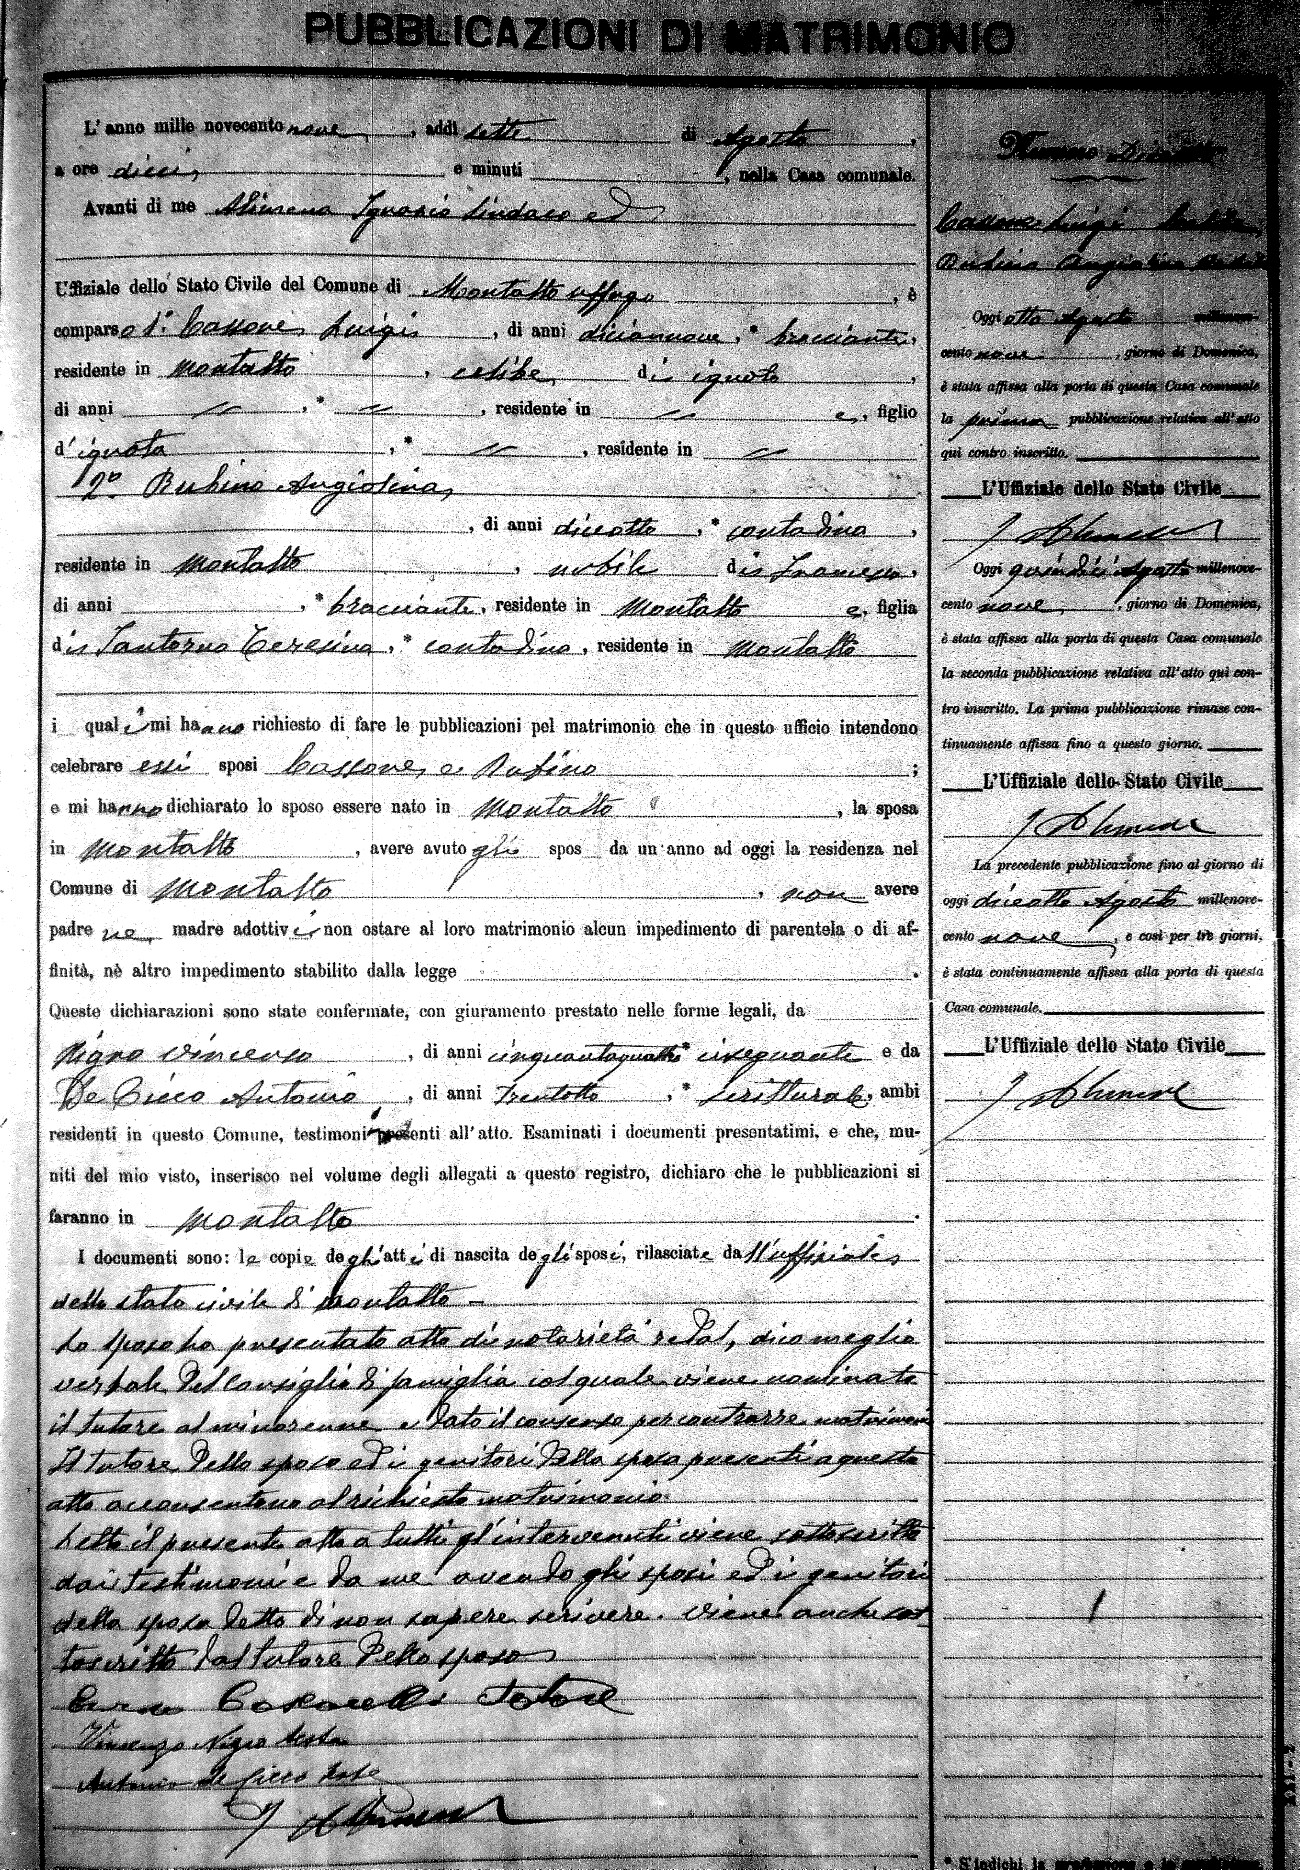 PUBBLICAZIONI DI MATRIMONIO
L'anno mille novecento nove, addì sette di Agosto,
a ore dieci, e minuti , nella Casa comunale.
Avanti di me Alimena Ignazio Sindaco ed
Uffiziale dello Stato Civile del Comune di Montalto uffugo, è
comparso 1° Cassone Luigi, di anni diciannove, * bracciante,
residente in Montalto, celibe di ignoto,
di anni // , * // , residente in // e, figlio
d'ignota , * // , residente in //
2° Rubino Angiolina,
, di anni diciotto, * contadina,
residente in Montalto, nubile di Francesco,
di anni , * bracciante, residente in Montalto e, figlia
di Santoro Teresina, * contadina, residente in Montalto
i quali mi hanno richiesto di fare le pubblicazioni pel matrimonio che in questo ufficio intendono
celebrare essi sposi Cassone e Rubino ;
e mi hanno dichiarato lo sposo essere nato in Montalto , la sposa
in Montalto , avere avuto gli spos da un'anno ad oggi la residenza nel
Comune di Montalto , non avere
padre ne, madre adottivi non ostare al loro matrimonio alcun impedimento di parentela o di af-
finità, nè altro impedimento stabilito dalla legge .
Queste dichiarazioni sono state confermate, con giuramento prestato nelle forme legali, da
Nigro Vincenzo , di anni cinquantaquattro * e da
De Cicco Antonio , di anni trentotto , * scritturale, ambi
residenti in questo Comune, testimoni presenti all'atto. Esaminati i documenti presentatimi, e che, mu-
niti del mio visto, inserisco nel volume degli allegati a questo registro, dichiaro che le pubblicazioni si
faranno in Montalto .
I documenti sono: le copie degli atti di nascita degli sposi, rilasciate dall'uffiziale
dello stato civile di Montalto —
Lo sposo ha presentato atto di notorietà redat, dico meglio
verbale del consiglio di famiglia col quale viene nominato
il tutore al minorenne e dato il consenso per contrarre matrimonio
Il tutore dello sposo ed i genitori della sposa presenti a questo
atto acconsentono al richiesto matrimonio.
Letto il presente atto a tutti gl'intervenuti viene sottoscritto
dai testimoni e da me avendo gli sposi ed i genitori
della sposa detto di non sapere scrivere. Viene anche sot
toscritto dal tutore dello sposo
Tutore
Vincenzo Nigro teste
Antonio de Cicco teste
I Alimena
Numero
Cassone Luigi
Rubino Angiolina
Oggi otto Agosto millenove-
cento nove , giorno di Domenica,
è stata affissa alla porta di questa Casa comunale
la prima pubblicazione relativa all'atto
qui contro inscritto.
L'Uffiziale dello Stato Civile
I Alimena
Oggi quindici Agosto millenove-
cento nove , giorno di Domenica,
è stata affissa alla porta di questa Casa comunale
la seconda pubblicazione relativa all'atto quì con-
tro inscritto. La prima pubblicazione rimase con-
tinuamente affissa fino a questo giorno.
L'Uffiziale dello Stato Civile
I Alimena
La precedente pubblicazione fino al giorno di
oggi diciotto Agosto millenove-
cento nove , e così per tre giorni,
è stata continuamente affissa alla porta di questa
Casa comunale.
L'Uffiziale dello Stato Civile
I Alimena
* S'indichi la professione o la condizione